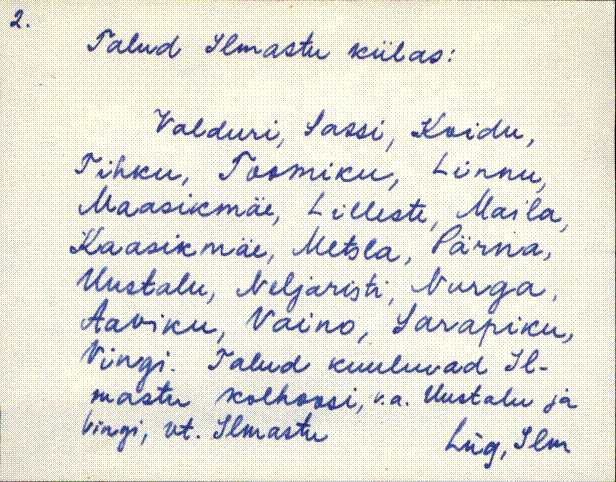 2.
Talud Ilmastu külas:
Valduri, Sassi, Koidu,
Tihku, Toomiku, Linnu,
Maasikmäe, Lilleste, Maila,
Kaasikmäe, Metsla, Pärna,
Uustalu, Neljaristi, Nurga,
Aaviku, Vaino, Sarapiku,
Vingi. Talud kuuluvad Il-
mastu kolhoosi, v.a. Uustalu ja
Vingi, vt. Ilmastu
Liig, Ilm